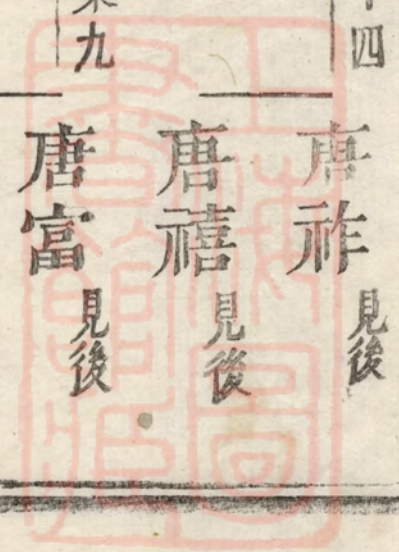 四
唐祚見後
唐禧見後
九
唐富見後